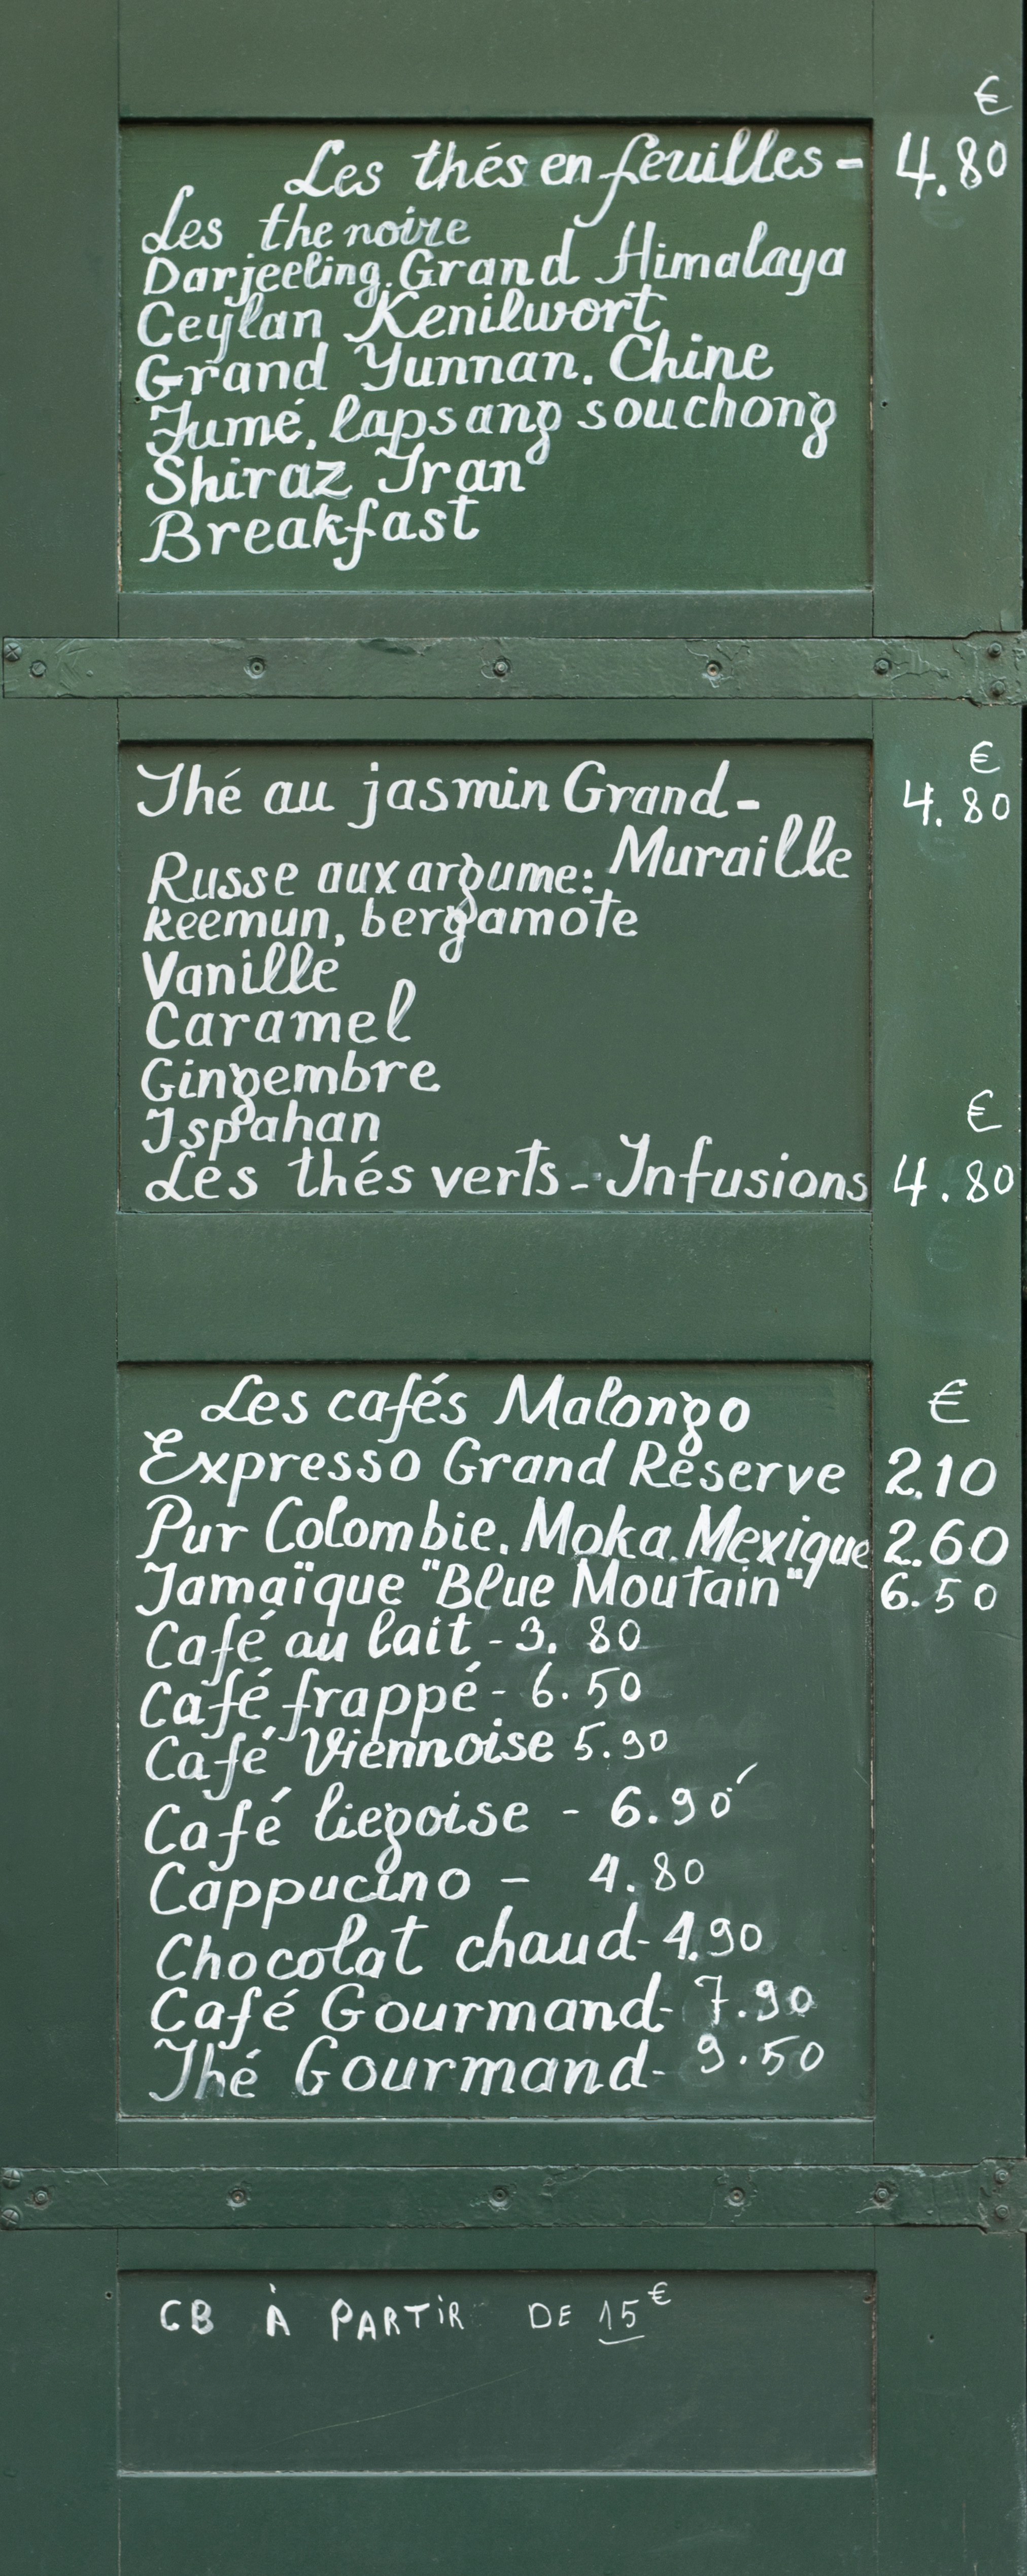 €
Les thés en feuilles - 4.80
Les the noire
Darjeeling. Grand Himalaya
Ceylan Kenilwort
Grand Yunnan. Chine
Fumé, lapsang souchong
Shiraz Iran
Breakfast
€
Thé au jasmin Grand- 4.80
Muraille
Russe aux argume:
Keemun, bergamote
Vanille
Caramel
Gingembre
Ispahan
€
Les thés verts - Infusions 4.80
Les cafés Malongo €
Expresso Grand Réserve 2.10
Pur Colombie. Moka. Mexique 2.60
Jamaïque "Blue Moutain" 6.50
Café au lait - 3.80
Café frappé - 6.50
Café Viennoise 5.90
Café liegoise - 6.90
Cappucino - 4.80
Chocolat chaud - 4.90
Café Gourmand - 7.90
Thé Gourmand - 9.50
CB À PARTiR DE 15€